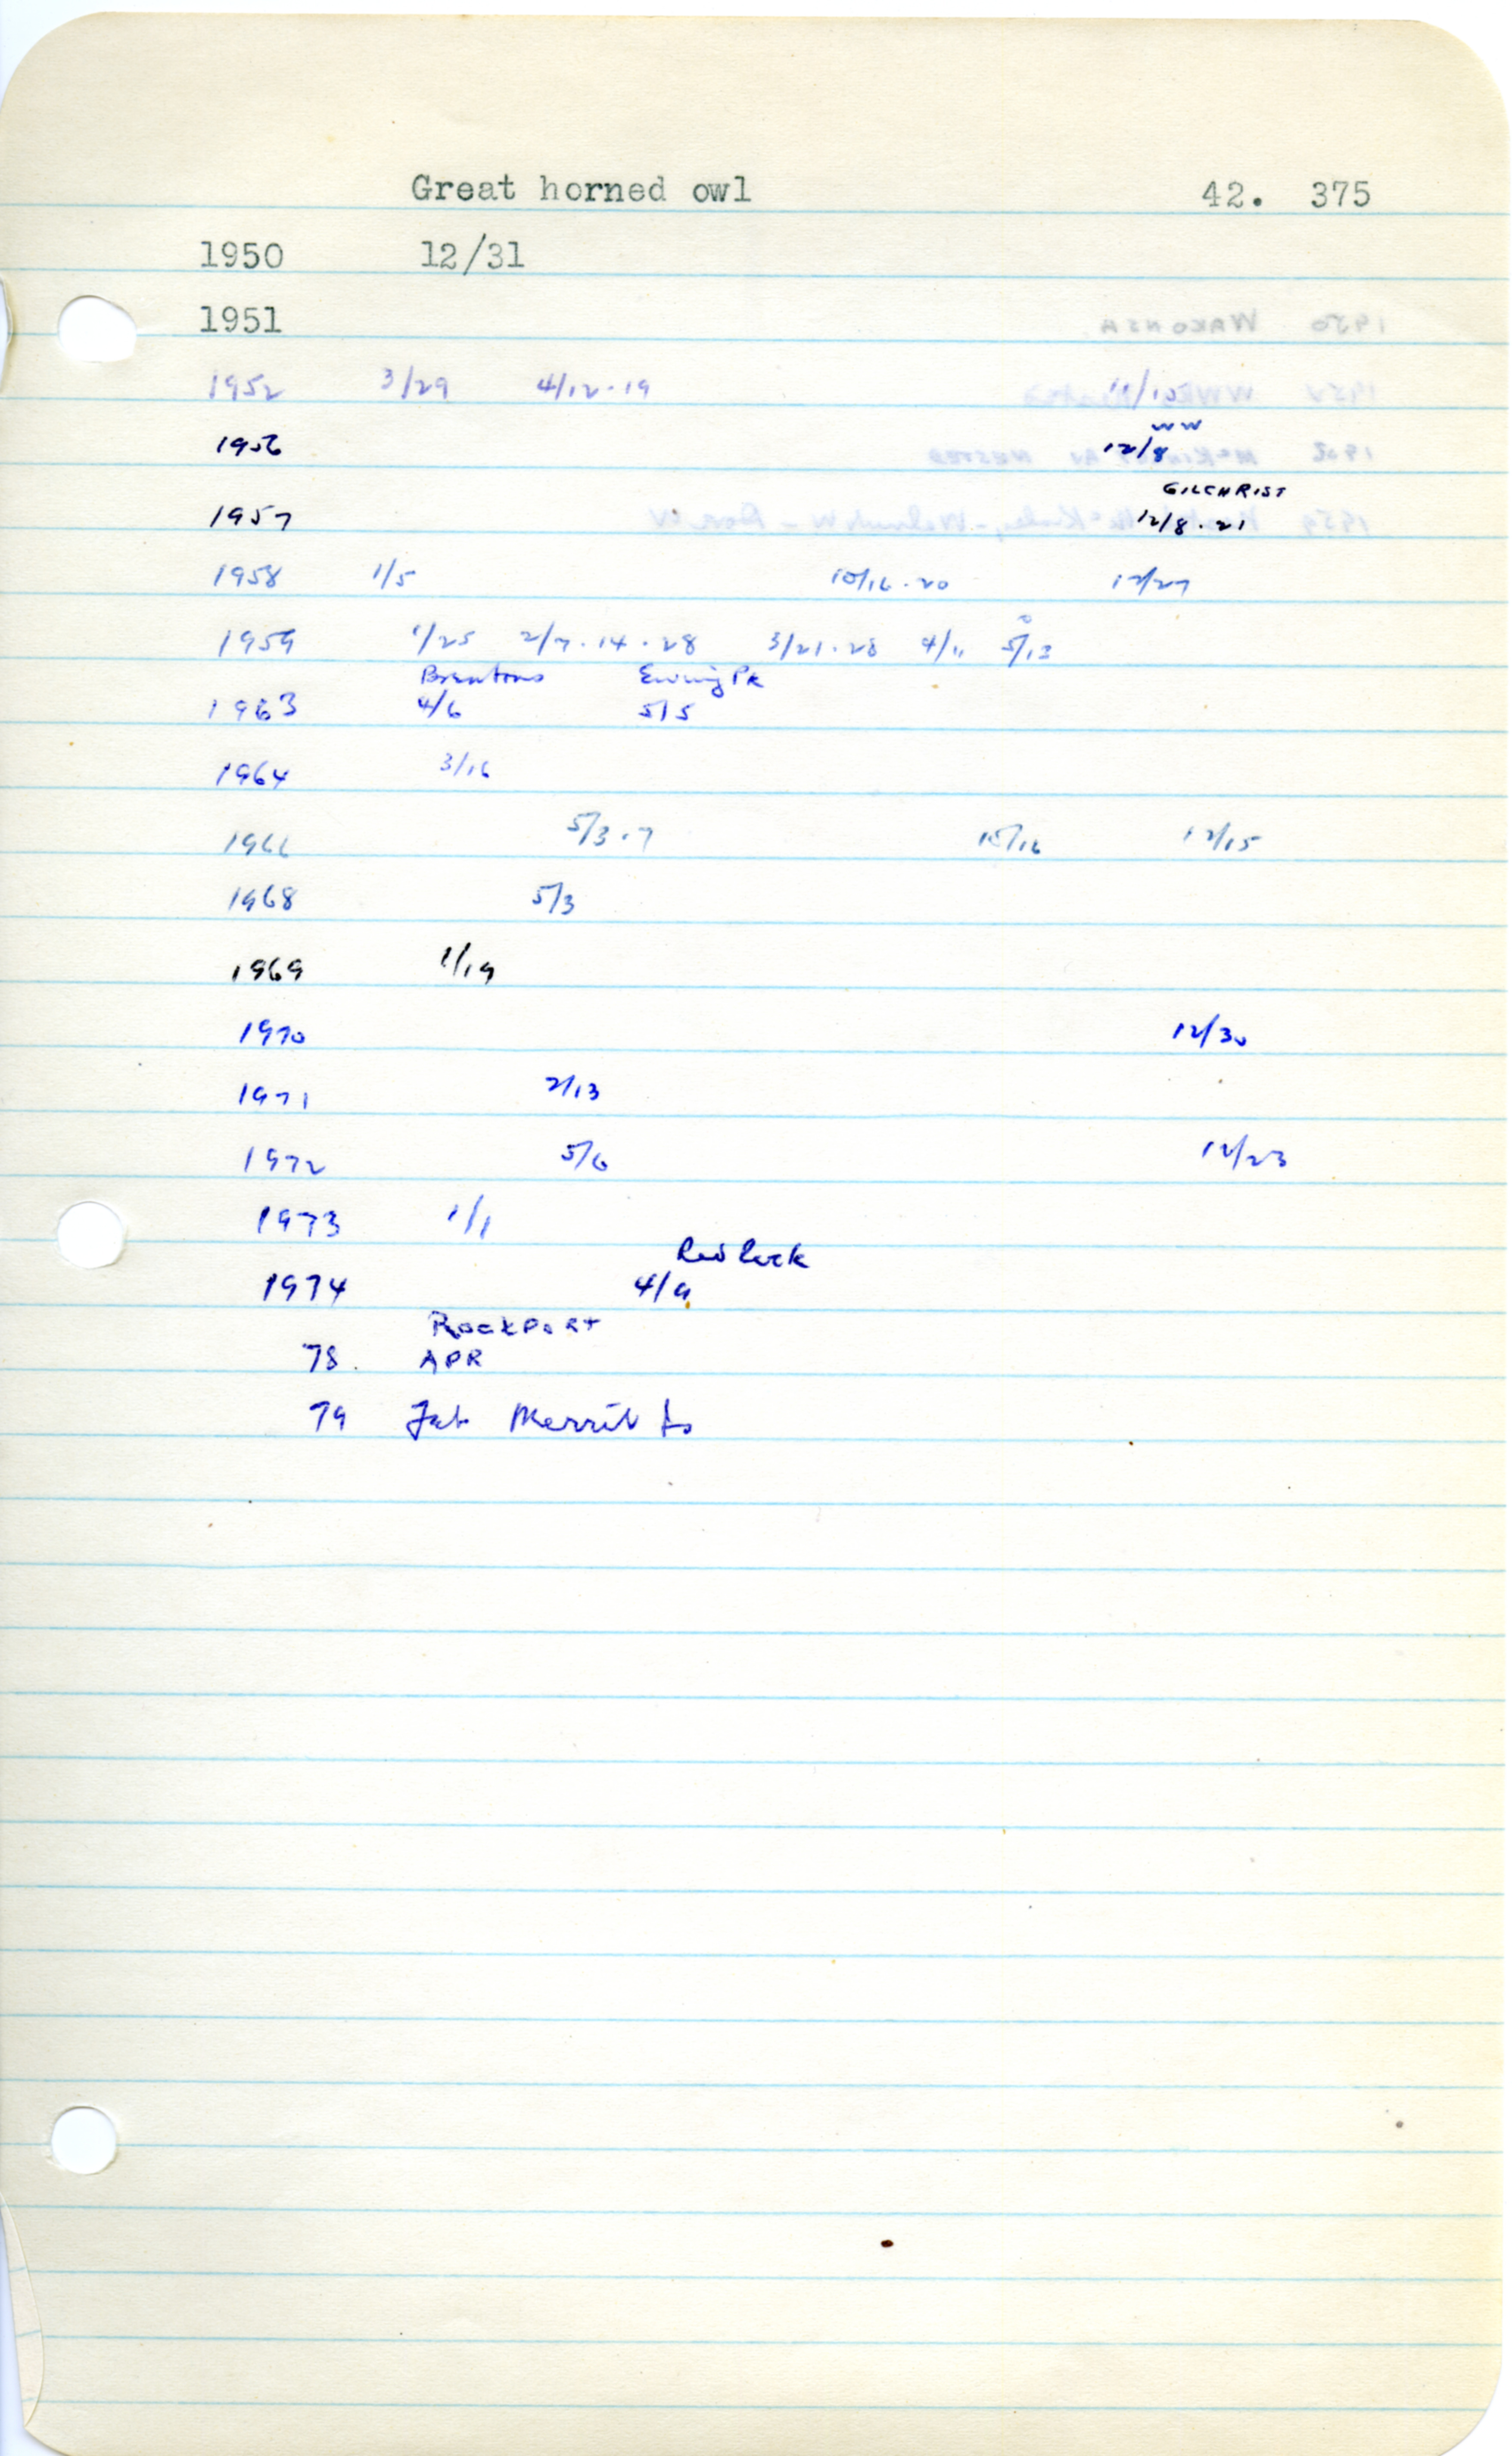 Great horned owl 42. 375
1950 12/31
1951
1952 3/29 4/12.19 12/10
WW
1956 12/8
GILCHRIST
1957 12/8.21
1958 1/5 10/16.20 12/27
1959 1/25 2/7.14.28 3/21.28 4/11 5/13
Brentons Ewing Pk
1963 4/6 5/5
1964 3/16
1966 5/3.7 10/16 12/15
1968 5/3
1969 1/19
1970 12/30
1971 2/13
1972 5/6 12/23
1973 1/1
Red Rock
1974 4/9
Rockport
78. APR
79 Feb Merrit